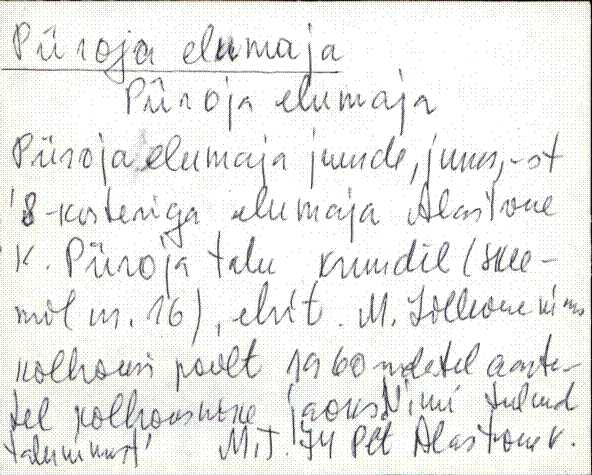 Püroja elumaja
Püroja elumaja
Püroja elumaja juurde, juures, -st
'8-korteriga elumaja Alastvere
k. Püroja talu krundil (skee-
mil nr. 16), ehit. M. nim.
kolhoosi poolt 1960-ndatel aasta-
tel kolhoosnike jaoks. Nimi tulnud
talu nimest' M.T. Plt Alastvere k.